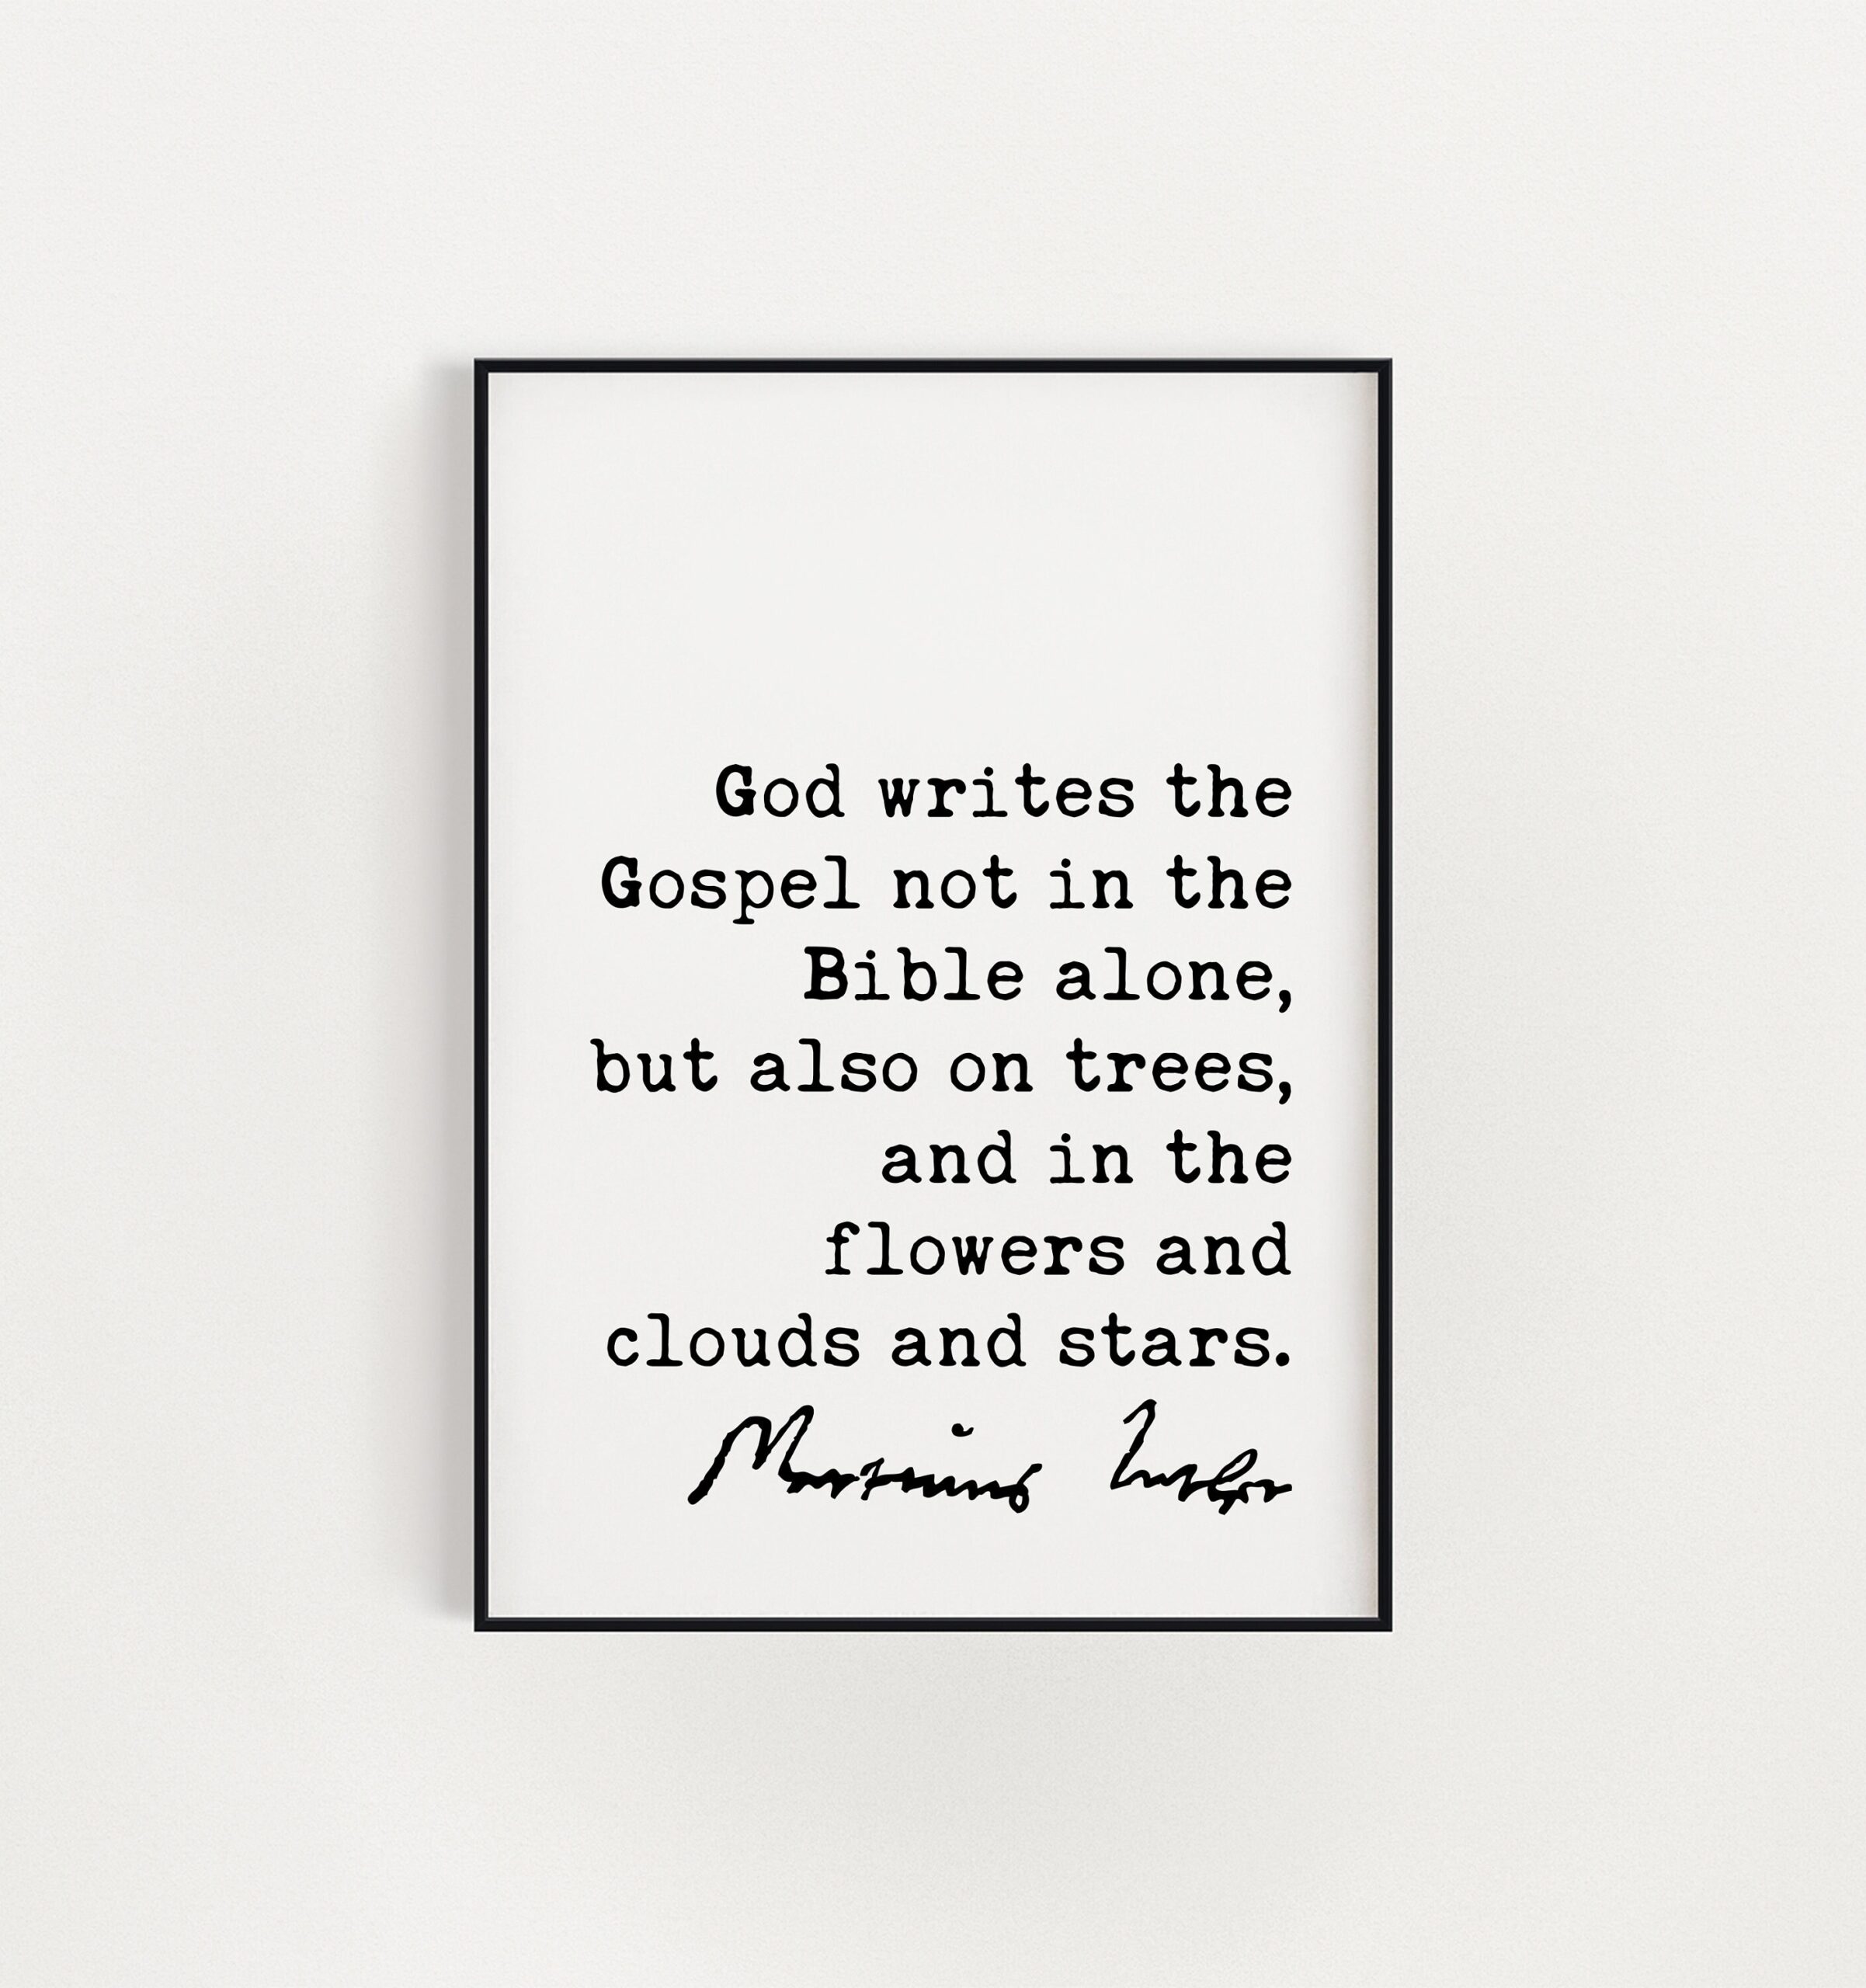 God writes the
Gospel not in the
Bible alone,
but also on trees,
and in the
flowers and
clouds and stars.
Martinus Luther